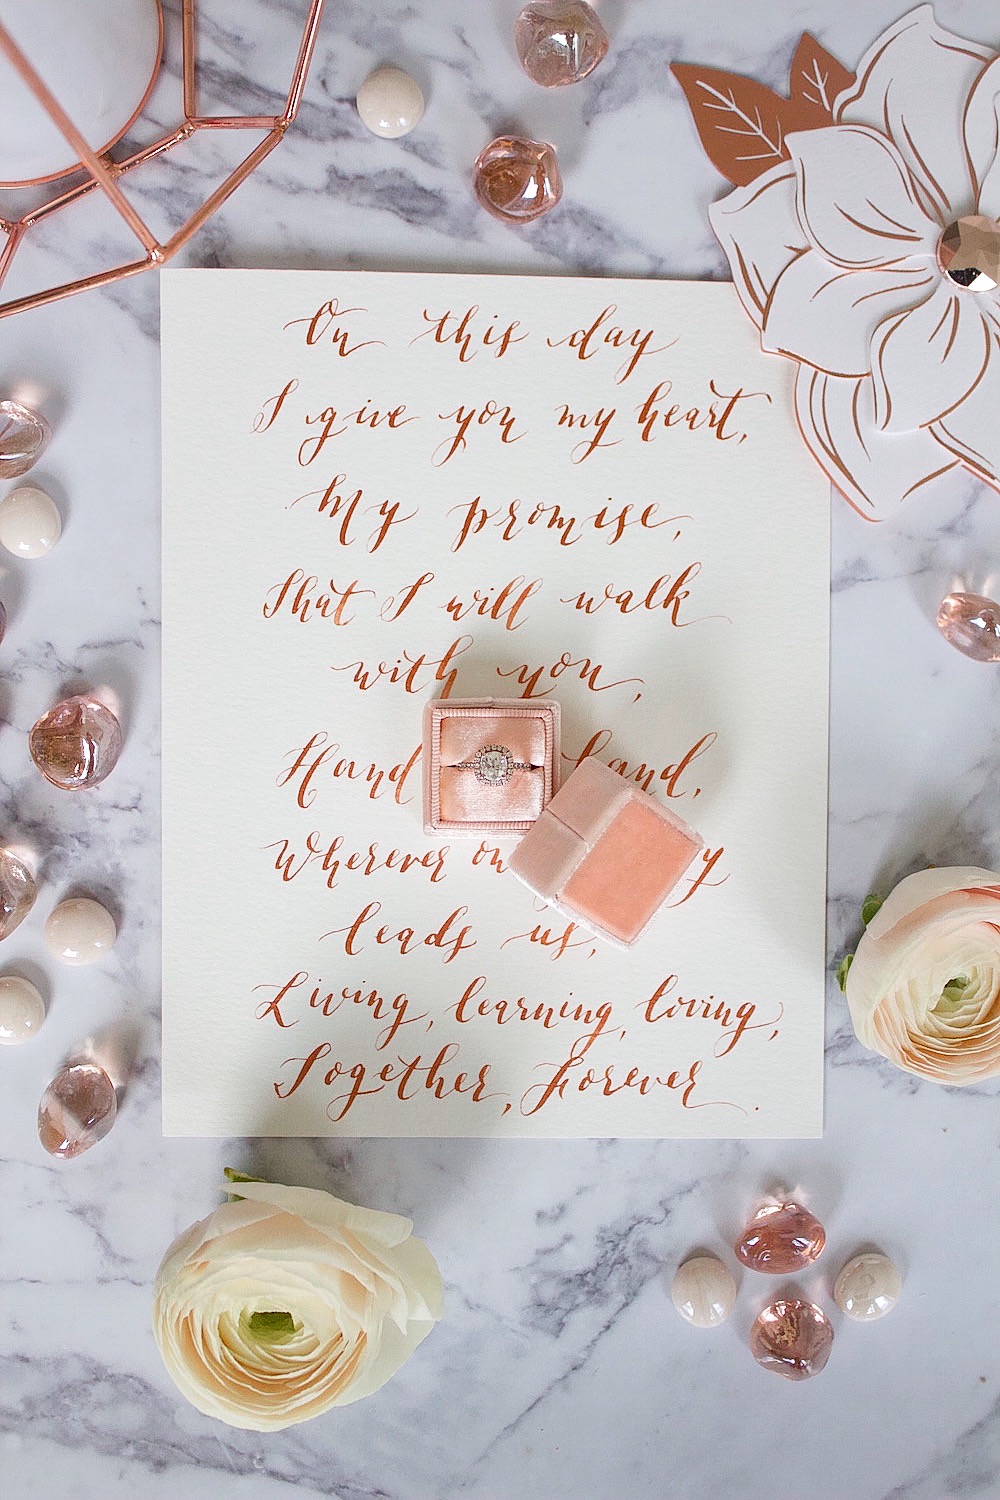 On this day
I give you my heart,
My promise,
That I will walk
with you,
Hand hand,
Wherever
leads us,
Living, learning, loving,
Together, Forever.